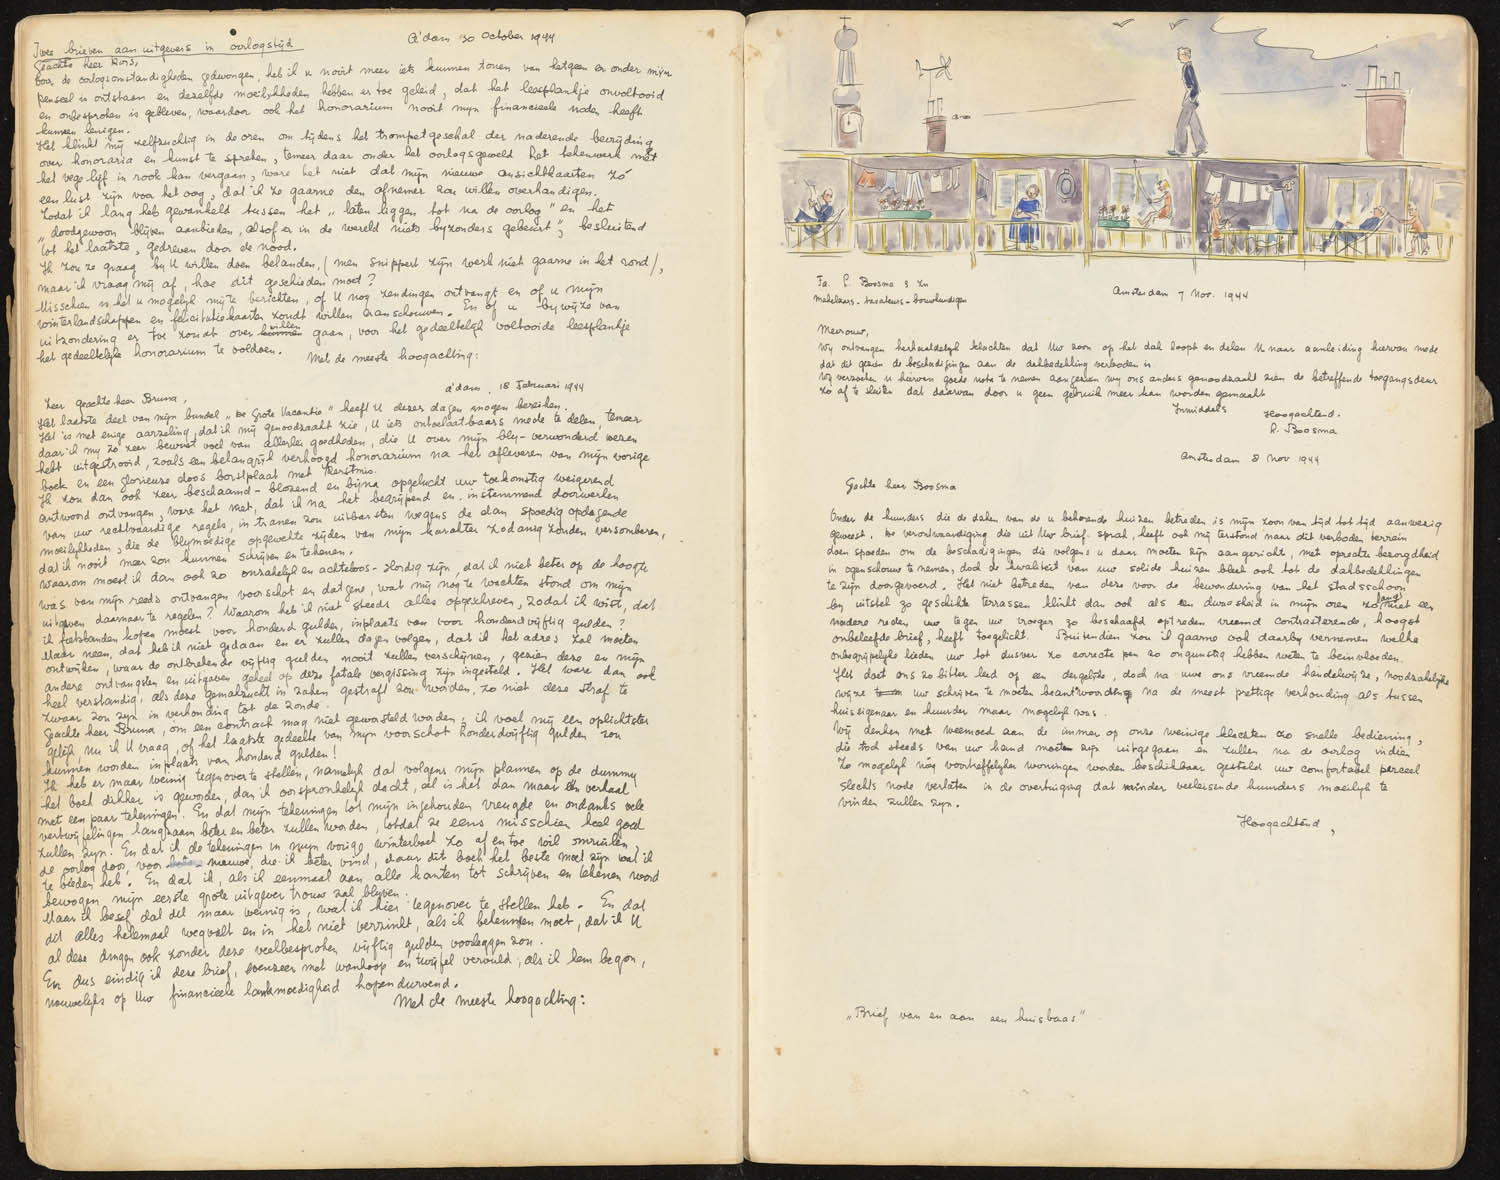 Twee brieven aan uitgevers in oorlogstijd
A'dam 30 October 1944
Geachte heer Kors,
Door de oorlogsomstandigheden gedwongen, heb ik u nooit meer iets kunnen tonen van hetgeen er onder mijn
penseel is ontstaan en dezelfde moeilijkheden hebben er toe geleid, dat het leesplankje onvoltooid
en onbesproken is gebleven, waardoor ook het honorarium nooit mijn financieele noden heeft
kunnen lenigen.
Het klinkt mij zelfzuchtig in de oren om tijdens het trompetgeschal der naderende bevrijding
over honoraria en kunst te spreken, temeer daar onder het oorlogsgeweld het tekenwerk met
het vege lijf in rook kan vergaan, ware het niet dat mijn nieuwe ansichtkaarten zó
een lust zijn voor het oog, dat ik ze gaarne den afnemer zou willen overhandigen.
Zodat ik lang heb gewankeld tussen het „laten liggen tot na de oorlog" en het
„doodgewoon blijven aanbieden, alsof er in de wereld niets byzonders gebeurt", besluitend
tot het laatste, gedreven door de nood.
Ik zou ze graag bij U willen doen belanden, (men snippert zijn werk niet gaarne in het rond),
maar ik vraag mij af, hoe dit geschieden moet?
Misschien is het u mogelijk mij te berichten, of U nog zendingen ontvangt en of u mijn
winterlandschappen en felicitatiekaarten zoudt willen aanschouwen. En of u bij wijze van
uitzondering er toe zoudt over willen gaan, voor het gedeeltelijk voltooide leesplankje
het gedeeltelijke honorarium te voldoen.
Met de meeste hoogachting:
A'dam. 18 Februari 1944
Zeer geachte heer Bruna,
Het laatste deel van mijn bundel „De Grote Vacantie" heeft U dezer dagen mogen bereiken.
Het is met enige aarzeling, dat ik mij genoodzaakt zie, U iets ontoelaatbaars mede te delen, temeer
daar ik mij zo zeer bewust voel van allerlei goedheden, die U over mijn blij-verwonderd wezen
hebt uitgestrooid, zoals een belangrijk verhoogd honorarium na het afleveren van mijn vorige
boek en een glorieuze doos borstplaat met Kerstmis.
Ik zou dan ook zeer beschaamd-blozend en bijna opgelucht uw toekomstig weigerend
antwoord ontvangen, ware het niet, dat ik na het begrijpend en instemmend doorwerken
van uw rechtvaardige regels, in tranen zou uitbarsten wegens de dan spoedig opdagende
moeilijkheden, die de blijmoedige opgewekte zijden van mijn karakter zodanig zouden versomberen,
dat ik nooit meer zou kunnen schrijven en tekenen.
Waarom moest ik dan ook zo onzakelijk en achteloos-slordig zijn, dat ik niet beter op de hoogte
was van mijn reeds ontvangen voorschot en datgene, wat mij nog te wachten stond om mijn
uitgaven daarnaar te regelen? Waarom heb ik niet steeds alles opgeschreven, zodat ik wist, dat
ik fietsbanden kopen moest voor honderd gulden, inplaats van voor honderdvijftig gulden?
Maar neen, dat heb ik niet gedaan en er zullen dagen volgen, dat ik het adres zal moeten
ontwijken, waar de ontbrekende vijftig gulden nooit zullen verschijnen, gezien deze en mijn
andere ontvangsten en uitgaven geheel op deze fatale vergissing zijn ingesteld. Het ware dan ook
heel verstandig, als deze gemakzucht in zaken gestraft zou worden, zo niet deze straf te
zwaar zou zijn in verhouding tot de zonde.
Geachte heer Bruna, om een contract mag niet geworsteld worden; ik voel mij een oplichtster
gelijk, nu ik U vraag, of het laatste gedeelte van mijn voorschot honderdvijftig gulden zou
kunnen worden inplaats van honderd gulden!
Ik heb er maar weinig tegenover te stellen, namelijk dat volgens mijn plannen op de dummy
het boek dikker is geworden, dan ik oorspronkelijk dacht, al is het dan maar één verhaal
met een paar tekeningen. En dat mijn tekeningen tot mijn ingehouden vreugde en ondanks vele
vertwijfelingen langzaam beter en beter zullen worden, totdat ze eens misschien heel goed
zullen zijn. En dat ik de tekeningen in mijn vorige winterboek zo af en toe wil omruilen,
de oorlog door, voor nieuwe, die ik beter vind, daar dit boek het beste moet zijn wat ik
te bieden heb. En dat ik, als ik eenmaal aan alle kanten tot schrijven en tekenen word
bewogen mijn eerste grote uitgever trouw zal blijven.
Maar ik besef dat dit maar weinig is, wat ik hier tegenover te stellen heb. En dat
dit alles helemaal wegvalt en in het niet verzinkt, als ik bekennen moet, dat ik U
al deze dingen ook zonder deze veelbesproken vijftig gulden voorleggen zou.
En dus eindig ik deze brief, evenzeer met wanhoop en twijfel vervuld, als ik hem begon,
nauwelijks op Uw financieele lankmoedigheid hopen durvend.
Met de meeste hoogachting:
Fa. L. Boosma & Zn
Makelaars-taxateurs-bouwkundigen
Amsterdam 7 Nov. 1944
Mevrouw,
Wij ontvangen herhaaldelijk klachten dat Uw zoon op het dak loopt en delen U naar aanleiding hiervan mede
dat dit gezien de beschadigingen aan de dakbedekking verboden is.
Wij verzoeken u hiervan goede nota te nemen aangezien wij ons anders genoodzaakt zien de betreffende toegangsdeur
zo af te sluiten dat daarvan door u geen gebruik meer kan worden gemaakt
Inmiddels
Hoogachtend.
L. Boosma
Amsterdam 8 Nov 1944
Geachte heer Boosma
Onder de huurders die de daken van de u behorende huizen betreden is mijn zoon van tijd tot tijd aanwezig
geweest. De verontwaardiging die uit Uw brief sprak, heeft ook mij terstond naar dit verboden terrein
doen spoeden om de beschadigingen die volgens u daar moeten zijn aangericht, met oprechte bezorgdheid
in ogenschouw te nemen, doch de kwaliteit van uw solide huizen bleek ook tot de dakbedekkingen
te zijn doorgevoerd. Het niet betreden van deze voor de bewondering van het stadsschoon
bij uitstek zo geschikte terrassen klinkt dan ook als een dwaasheid in mijn oren zo lang niet een
nadere reden uw tegen uw vroeger zo beschaafd optreden vreemd contrasterende, hoogst
onbeleefde brief, heeft toegelicht. Bovendien zou ik gaarne ook daarbij vernemen welke
onbegrijpelijke lieden uw tot dusver zo correcte pen zo ongunstig hebben weten te beinvloeden.
Het doet ons zo bitter leed op een dergelijke, doch na uwe ons vreemde handelwijze, noodzakelijke
wijze uw schrijven te moeten beantwoorden na de meest prettige verhouding als tussen
huiseigenaar en huurder maar mogelijk was.
Wij denken met weemoed aan de immer op onze weinige klachten zo snelle bediening,
die toch steeds van uw hand moeten zijn uitgegaan en zullen na de oorlog indien
zo mogelijk nóg voortreffelijker woningen worden beschikbaar gesteld uw comfortabel perceel
slechts node verlaten in de overtuiging dat minder veeleisende huurders moeilijk te
vinden zullen zijn.
Hoogachtend,
„Brief van en aan een huisbaas"